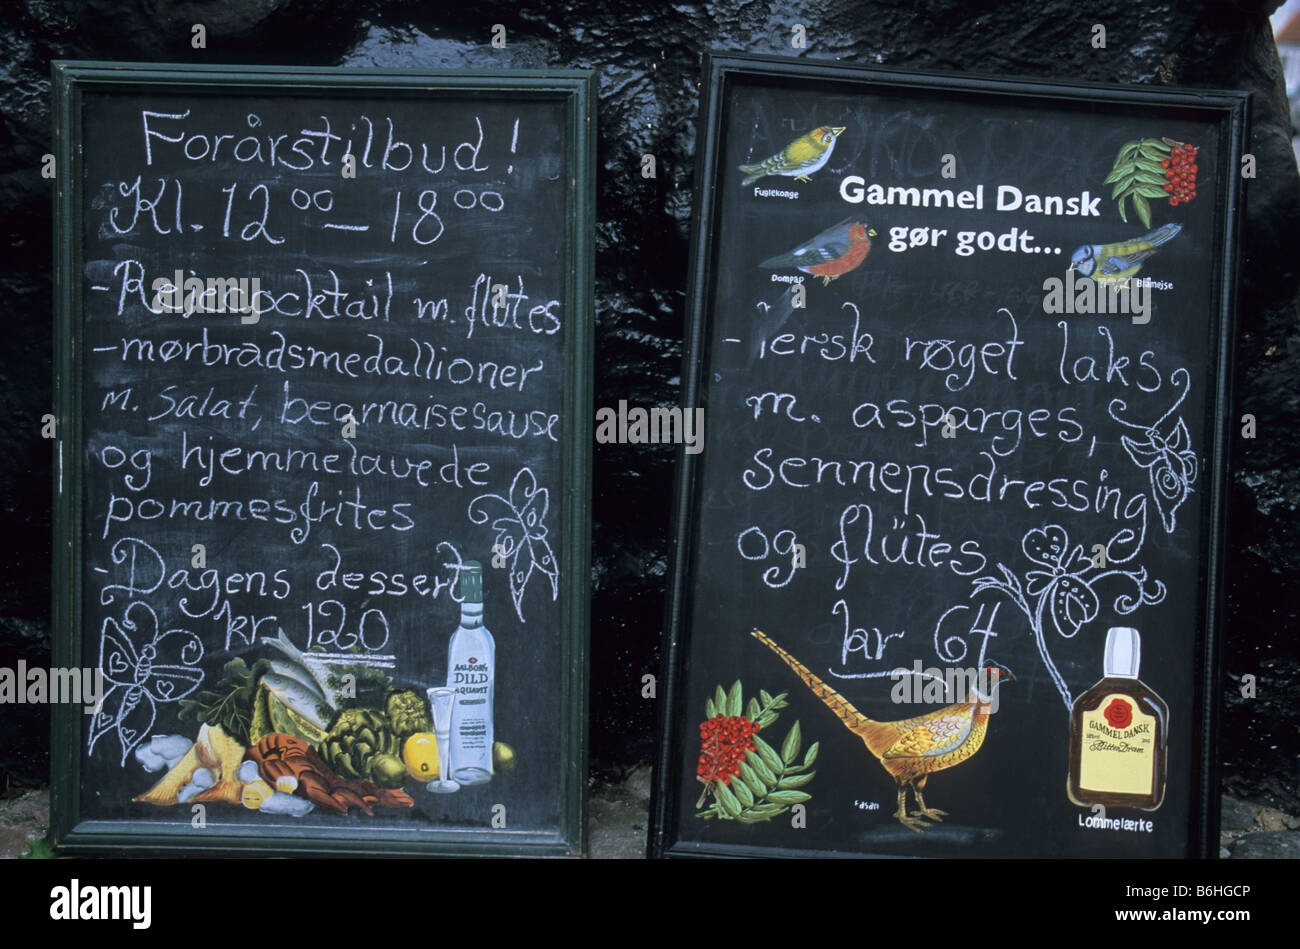 Forårstilbud!
Kl. 12⁰⁰ – 18⁰⁰
- Rejecocktail m. flütes
- mørbradsmedallioner
m. Salat, bearnaisesause
og hjemmelavede
pommesfrites
- Dagens dessert
kr 120
AALBORG
DILD
AQUAVIT
Fuglekonge
Gammel Dansk
gør godt...
Dompap
Blåmejse
- iersk røget laks
m. asparges,
sennepsdressing
og flütes
kr 64
GAMMEL DANSK
Bitter Dram
Lommelærke
alamy
Image ID: B6HGCP
www.alamy.com